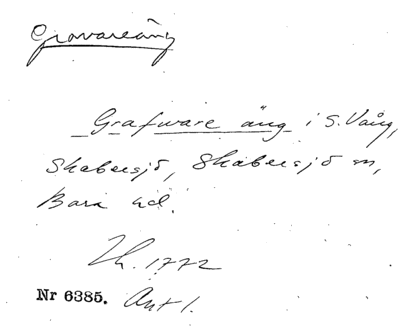 Gravareäng
Grafware äng i S. Vång,
Skabersjö, Skabersjö sn,
Bara hd.
Lh. 1772
Nr 6385. Akt 1.